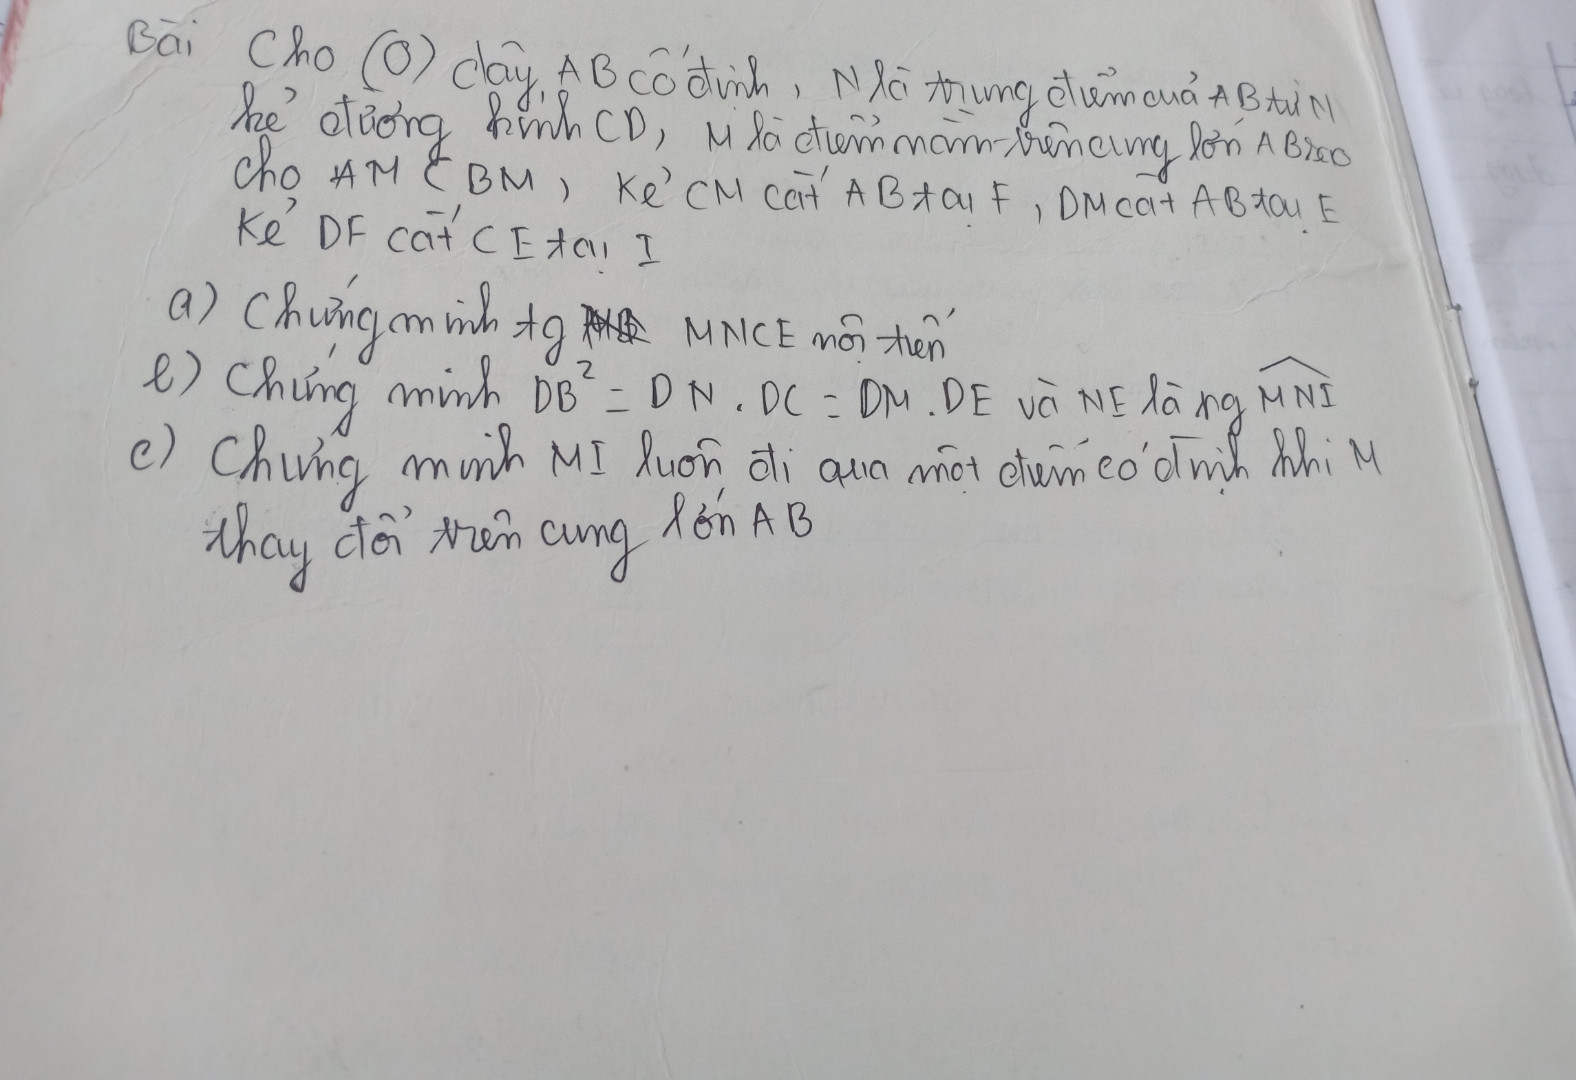 Bài Cho (O) dây AB cố định, N là trung điểm của AB từ N
kẻ đường kính CD, M là điểm nằm trên cung lớn AB sao
cho AM < BM, Kẻ CM cắt AB tại F, DM cắt AB tại E
Kẻ DF cắt CE tại I
a) Chứng minh tg MNCE nội tiến
b) Chứng minh DB² = DN . DC = DM . DE và NE là ng MNI
c) Chứng minh MI luôn đi qua một điểm cố định khi M
thay đổi trên cung lớn AB